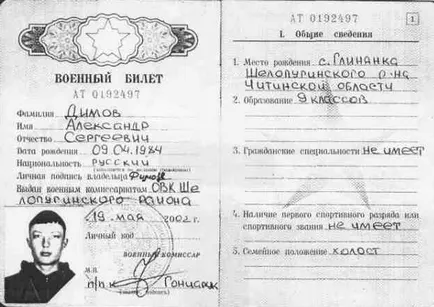 ВОЕННЫЙ БИЛЕТ
АТ 0192497
Фамилия Димов
Имя Александр
Отчество Сергеевич
Дата рождения 09.04.1984
Национальность русский
Личная подпись владельца
Выдан военным комиссариатом ОВК Ше
лопугинского района
19 мая 2002 г.
Личный код
ВОЕННЫЙ КОМИССАР
М.П.
п/п-к Гончарик
АТ 0192497
1
I. Общие сведения
1. Место рождения с. Глинянка
Шелопугинского р-на
Читинской области
2. Образование 9 классов
3. Гражданские специальности не имеет
4. Наличие первого спортивного разряда или
спортивного звания не имеет
5. Семейное положение холост